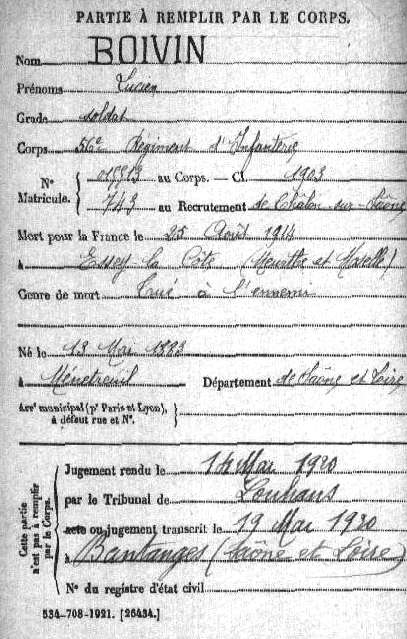 PARTIE À REMPLIR PAR LE CORPS.
Nom BOIVIN
Prénoms Lucien
Grade soldat
Corps 56e Régiment d'Infanterie
N° Matricule. { 018813 au Corps. — Cl. 1903
743 au Recrutement de Chalon sur Saône
Mort pour la France le 25 Août 1914
à Essey la Côte (Meurthe et Moselle)
Genre de mort Tué à l'ennemi
Né le 13 Mai 1883
à Ménetreuil Département de Saône et Loire
Arrt municipal (pr Paris et Lyon), à défaut rue et N°. }
Cette partie n'est pas à remplir par le Corps.
Jugement rendu le 14 Mai 1920
par le Tribunal de Louhans
acte ou jugement transcrit le 19 Mai 1920
à Bantanges (Saône et Loire)
N° du registre d'état civil
534-708-1921. [26434.]